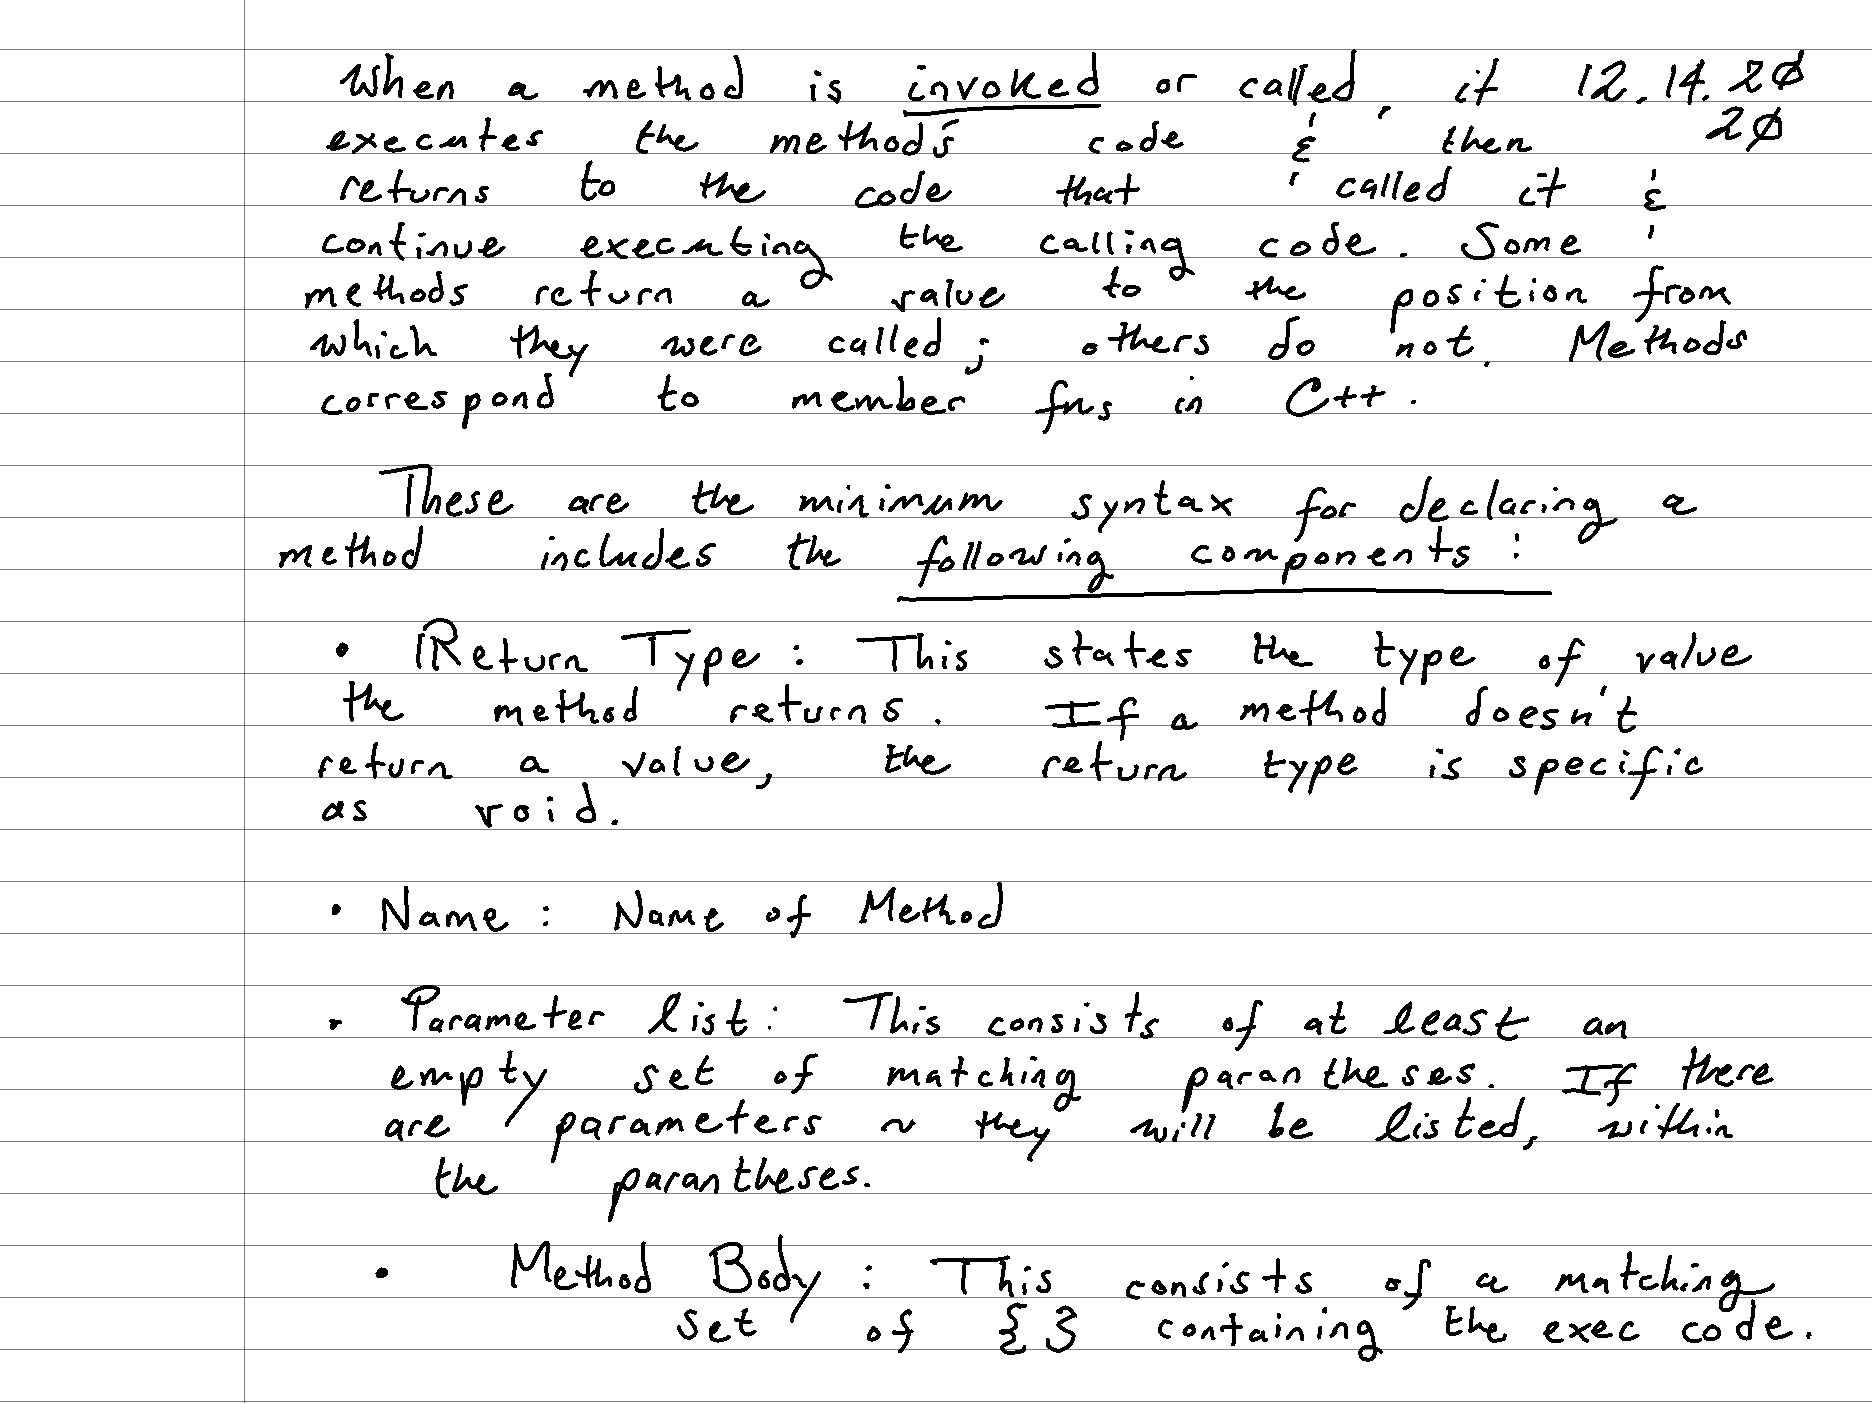 When a method is invoked or called, it 12.14.20
executes the method's code & then 20
returns to the code that called it &
continue executing the calling code. Some
methods return a value to the position from
which they were called; others do not. Methods
correspond to member fns in C++.
These are the minimum syntax for declaring a
method includes the following components:
• Return Type: This states the type of value
the method returns. If a method doesn't
return a value, the return type is specific
as void.
• Name: Name of Method
• Parameter list: This consists of at least an
empty set of matching parantheses. If there
are parameters ~ they will be listed, within
the parantheses.
• Method Body: This consists of a matching
set of {} containing the exec code.